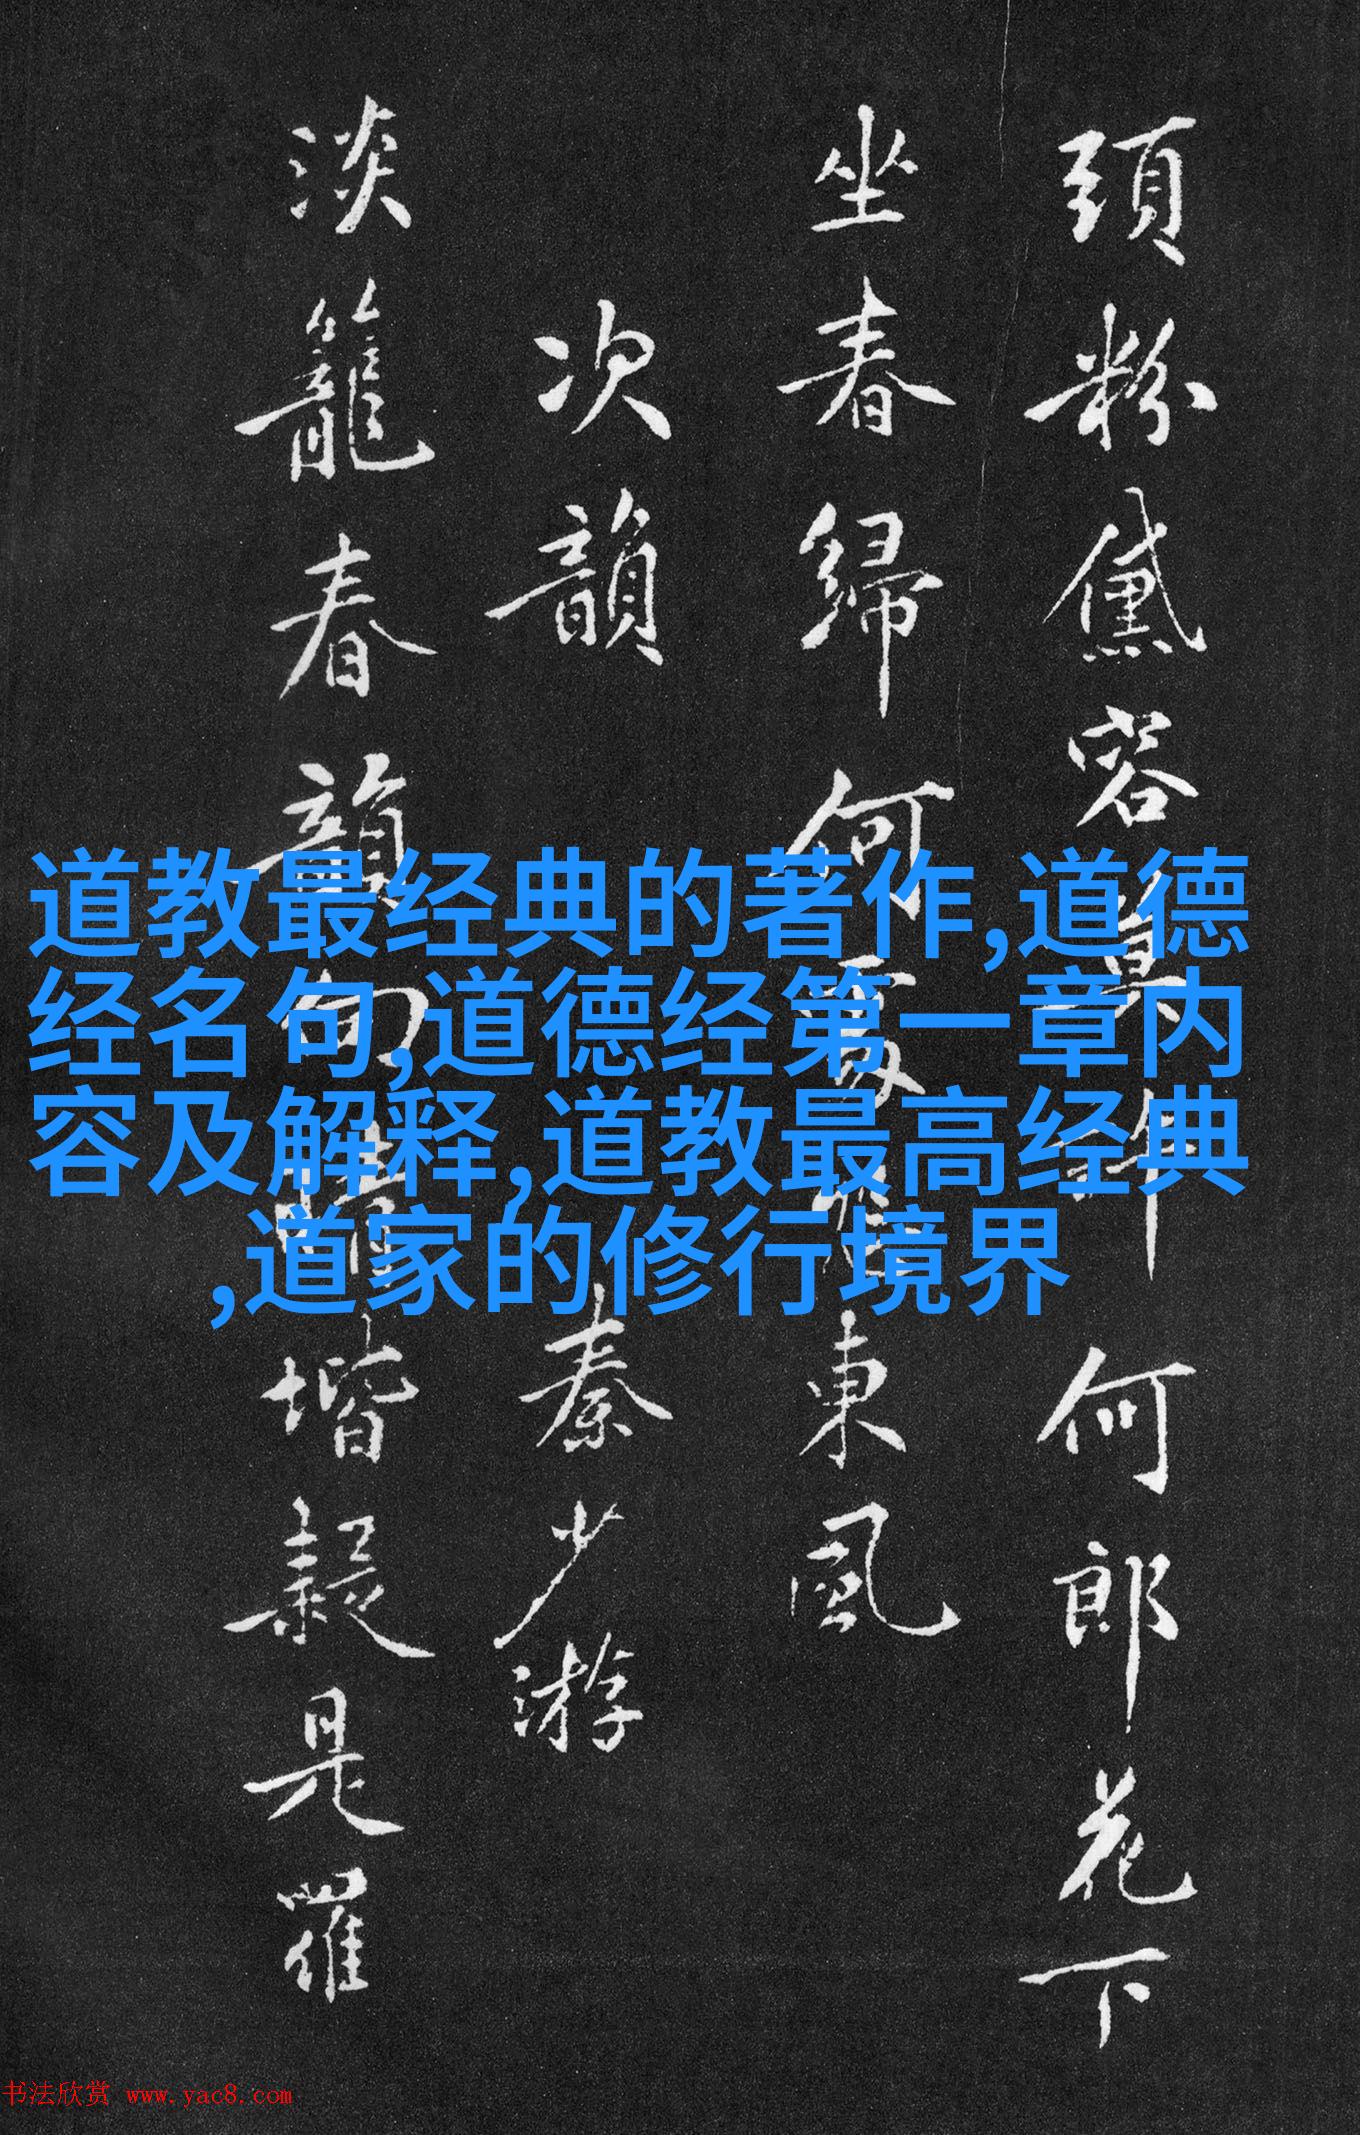 頭粉黛容
何郎花下
坐春歸何
東風
次韻
秦少游
淡籠春韻
堦疑是羅
道教最经典的著作,道德
经名句,道德经第一章内
容及解释,道教最高经典
,道家的修行境界
书法欣赏 www.yac8.com